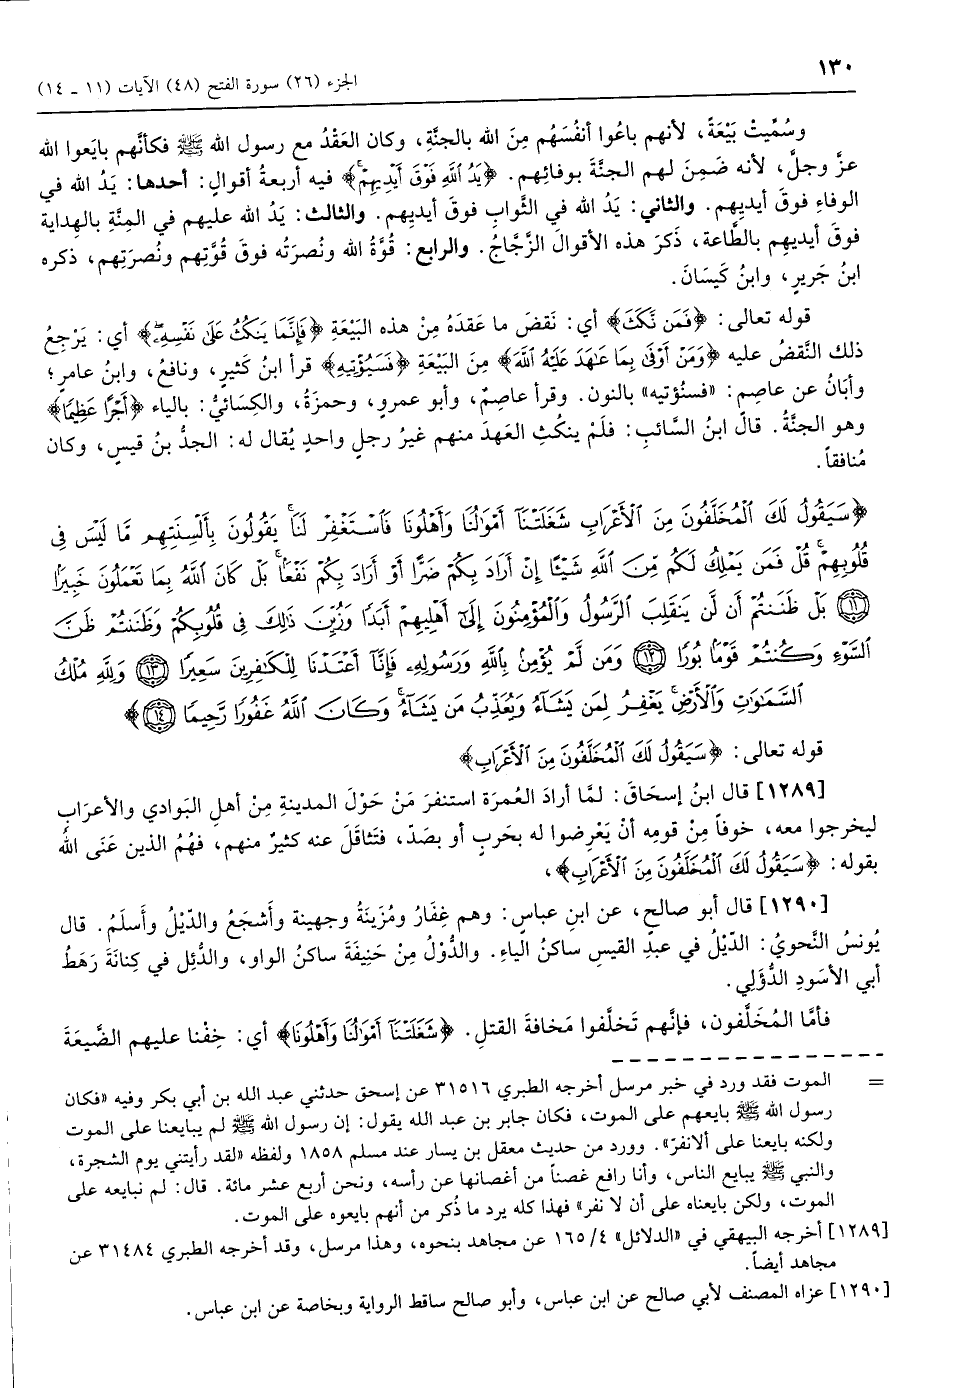 ١٣٠
الجزء (٢٦) سورة الفتح (٤٨) الآيات (١١ ـ ١٤)
وسُمِّيتْ بَيْعَةً، لأنهم باعُوا أنفُسَهُم مِنَ الله بالجنَّةِ، وكان العَقْدُ مع رسول الله ﷺ فكأنَّهم بايَعوا الله
عزَّ وجلَّ، لأنه ضَمِنَ لهم الجنَّةَ بوفائِهم. ﴿يَدُ ٱللَّهِ فَوْقَ أَيْدِيهِمْ﴾ فيه أربعةُ أقوالٍ: أحدها: يَدُ الله في
الوفاءِ فوقَ أيديهم. والثاني: يَدُ الله في الثَّوابِ فوقَ أيديهم. والثالث: يَدُ الله عليهم في المِنَّةِ بالهِداية
فوقَ أيديهِم بالطَّاعة، ذَكرَ هذه الأقوالَ الزَّجَّاجُ. والرابع: قُوَّةُ الله ونُصرَتُه فوقَ قُوَّتِهم ونُصرَتِهم، ذكره
ابنُ جَريرٍ، وابنُ كَيسَانَ.
قوله تعالى: ﴿فَمَن نَّكَثَ﴾ أي: نَقضَ ما عَقدَهُ مِنْ هذه البَيْعَةِ ﴿فَإِنَّمَا يَنكُثُ عَلَىٰ نَفْسِهِۦ﴾ أي: يَرْجِعُ
ذلك النَّقضُ عليه ﴿وَمَنْ أَوْفَىٰ بِمَا عَٰهَدَ عَلَيْهُ ٱللَّهَ﴾ مِنَ البَيْعَةِ ﴿فَسَيُؤْتِيهِ﴾ قرأ ابنُ كثيرٍ، ونافعُ، وابنُ عامرٍ؛
وأبَانُ عن عاصِم: «فسنُؤتيه» بالنون. وقرأ عاصِمٌ، وأبو عمروٍ، وحمزَةُ، والكِسَائيُّ: بالياء ﴿أَجْرًا عَظِيمًا﴾
وهو الجنَّةُ. قالَ ابنُ السَّائبِ: فلَمْ ينكُثِ العَهدَ منهم غيرُ رجلٍ واحدٍ يُقال له: الجدُّ بنُ قيسٍ، وكان
مُنافقاً.
﴿سَيَقُولُ لَكَ ٱلْمُخَلَّفُونَ مِنَ ٱلْأَعْرَابِ شَغَلَتْنَآ أَمْوَٰلُنَا وَأَهْلُونَا فَٱسْتَغْفِرْ لَنَا يَقُولُونَ بِأَلْسِنَتِهِم مَّا لَيْسَ فِى
قُلُوبِهِمْ قُلْ فَمَن يَمْلِكُ لَكُم مِّنَ ٱللَّهِ شَيْـًٔا إِنْ أَرَادَ بِكُمْ ضَرًّا أَوْ أَرَادَ بِكُمْ نَفْعًا بَلْ كَانَ ٱللَّهُ بِمَا تَعْمَلُونَ خَبِيرًا
(١١) بَلْ ظَنَنتُمْ أَن لَّن يَنقَلِبَ ٱلرَّسُولُ وَٱلْمُؤْمِنُونَ إِلَىٰٓ أَهْلِيهِمْ أَبَدًا وَزُيِّنَ ذَٰلِكَ فِى قُلُوبِكُمْ وَظَنَنتُمْ ظَنَّ
ٱلسَّوْءِ وَكُنتُمْ قَوْمًا بُورًا (١٢) وَمَن لَّمْ يُؤْمِنۢ بِٱللَّهِ وَرَسُولِهِۦ فَإِنَّآ أَعْتَدْنَا لِلْكَٰفِرِينَ سَعِيرًا (١٣) وَلِلَّهِ مُلْكُ
ٱلسَّمَٰوَٰتِ وَٱلْأَرْضِ يَغْفِرُ لِمَن يَشَآءُ وَيُعَذِّبُ مَن يَشَآءُ وَكَانَ ٱللَّهُ غَفُورًا رَّحِيمًا (١٤)﴾
قوله تعالى: ﴿سَيَقُولُ لَكَ ٱلْمُخَلَّفُونَ مِنَ ٱلْأَعْرَابِ﴾
[١٢٨٩] قال ابنُ إسحَاقَ: لمَّا أرادَ العُمرَة استنفرَ مَنْ حَوْلَ المدينةِ مِنْ أهلِ البَوادي والأعرابِ
ليخرجوا معه، خوفاً مِنْ قومِه أنْ يَعْرِضوا له بحَربٍ أو بصَدّ، فتَثاقَلَ عنه كثيرٌ منهم، فهُمُ الذين عَنَى اللهُ
بقوله: ﴿سَيَقُولُ لَكَ ٱلْمُخَلَّفُونَ مِنَ ٱلْأَعْرَابِ﴾،
[١٢٩٠] قال أبو صالحٍ، عن ابنِ عباسٍ: وهم غِفَارُ ومُزَينَةُ وجهينة وأشجَعُ والدِّيْلُ وأسلَمُ. قال
يُونسُ النَّحويُّ: الدِّيْلُ في عبدِ القيسِ ساكنُ الياءِ. والدُّوْلُ مِنْ حَنِيفَةَ ساكنُ الواو، والدُّئِل في كِنانَةَ رَهَطُ
أبي الأسوَدِ الدُّؤَلِي.
فأمَّا المُخَلَّفون، فإنَّهم تَخلَّفوا مَخافةَ القتلِ. ﴿شَغَلَتْنَآ أَمْوَٰلُنَا وَأَهْلُونَا﴾ أي: خِفْنا عليهم الضَّيعَةَ
= الموت فقد ورد في خبر مرسل أخرجه الطبري ٣١٥١٦ عن إسحق حدثني عبد الله بن أبي بكر وفيه «فكان
رسول الله ﷺ بايعهم على الموت، فكان جابر بن عبد الله يقول: إن رسول الله ﷺ لم يبايعنا على الموت
ولكنه بايعنا على ألانفرّ». وورد من حديث معقل بن يسار عند مسلم ١٨٥٨ ولفظه «لقد رأيتني يوم الشجرة،
والنبي ﷺ يبايع الناس، وأنا رافع غصناً من أغصانها عن رأسه، ونحن أربع عشر مائة. قال: لم نبايعه على
الموت، ولكن بايعناه على أن لا نفر» فهذا كله يرد ما ذُكر من أنهم بايعوه على الموت.
[١٢٨٩] أخرجه البيهقي في «الدلائل» ٤/ ١٦٥ عن مجاهد بنحوه، وهذا مرسل، وقد أخرجه الطبري ٣١٤٨٤ عن
مجاهد أيضاً.
[١٢٩٠] عزاه المصنف لأبي صالح عن ابن عباس، وأبو صالح ساقط الرواية وبخاصة عن ابن عباس.